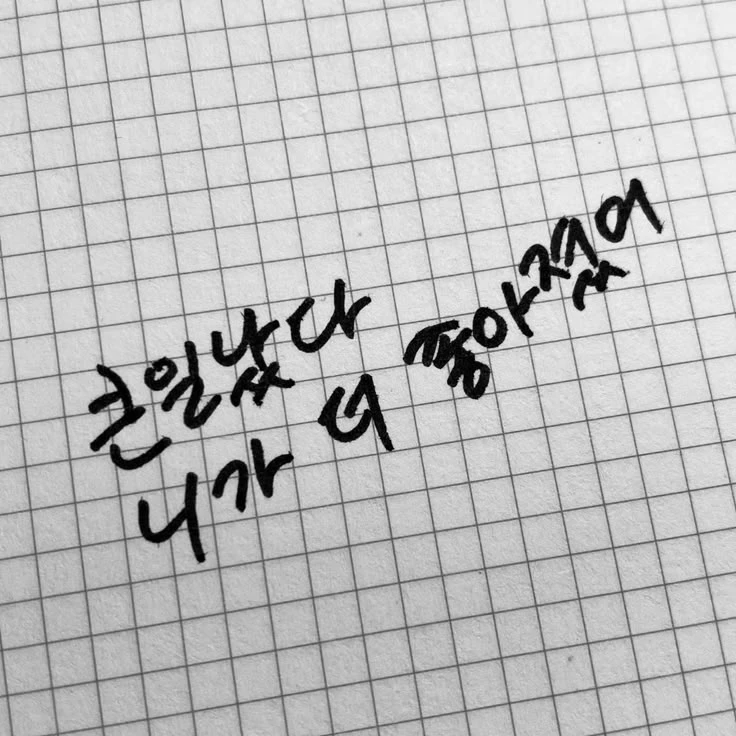 큰일났다
니가 더 좋아졌어